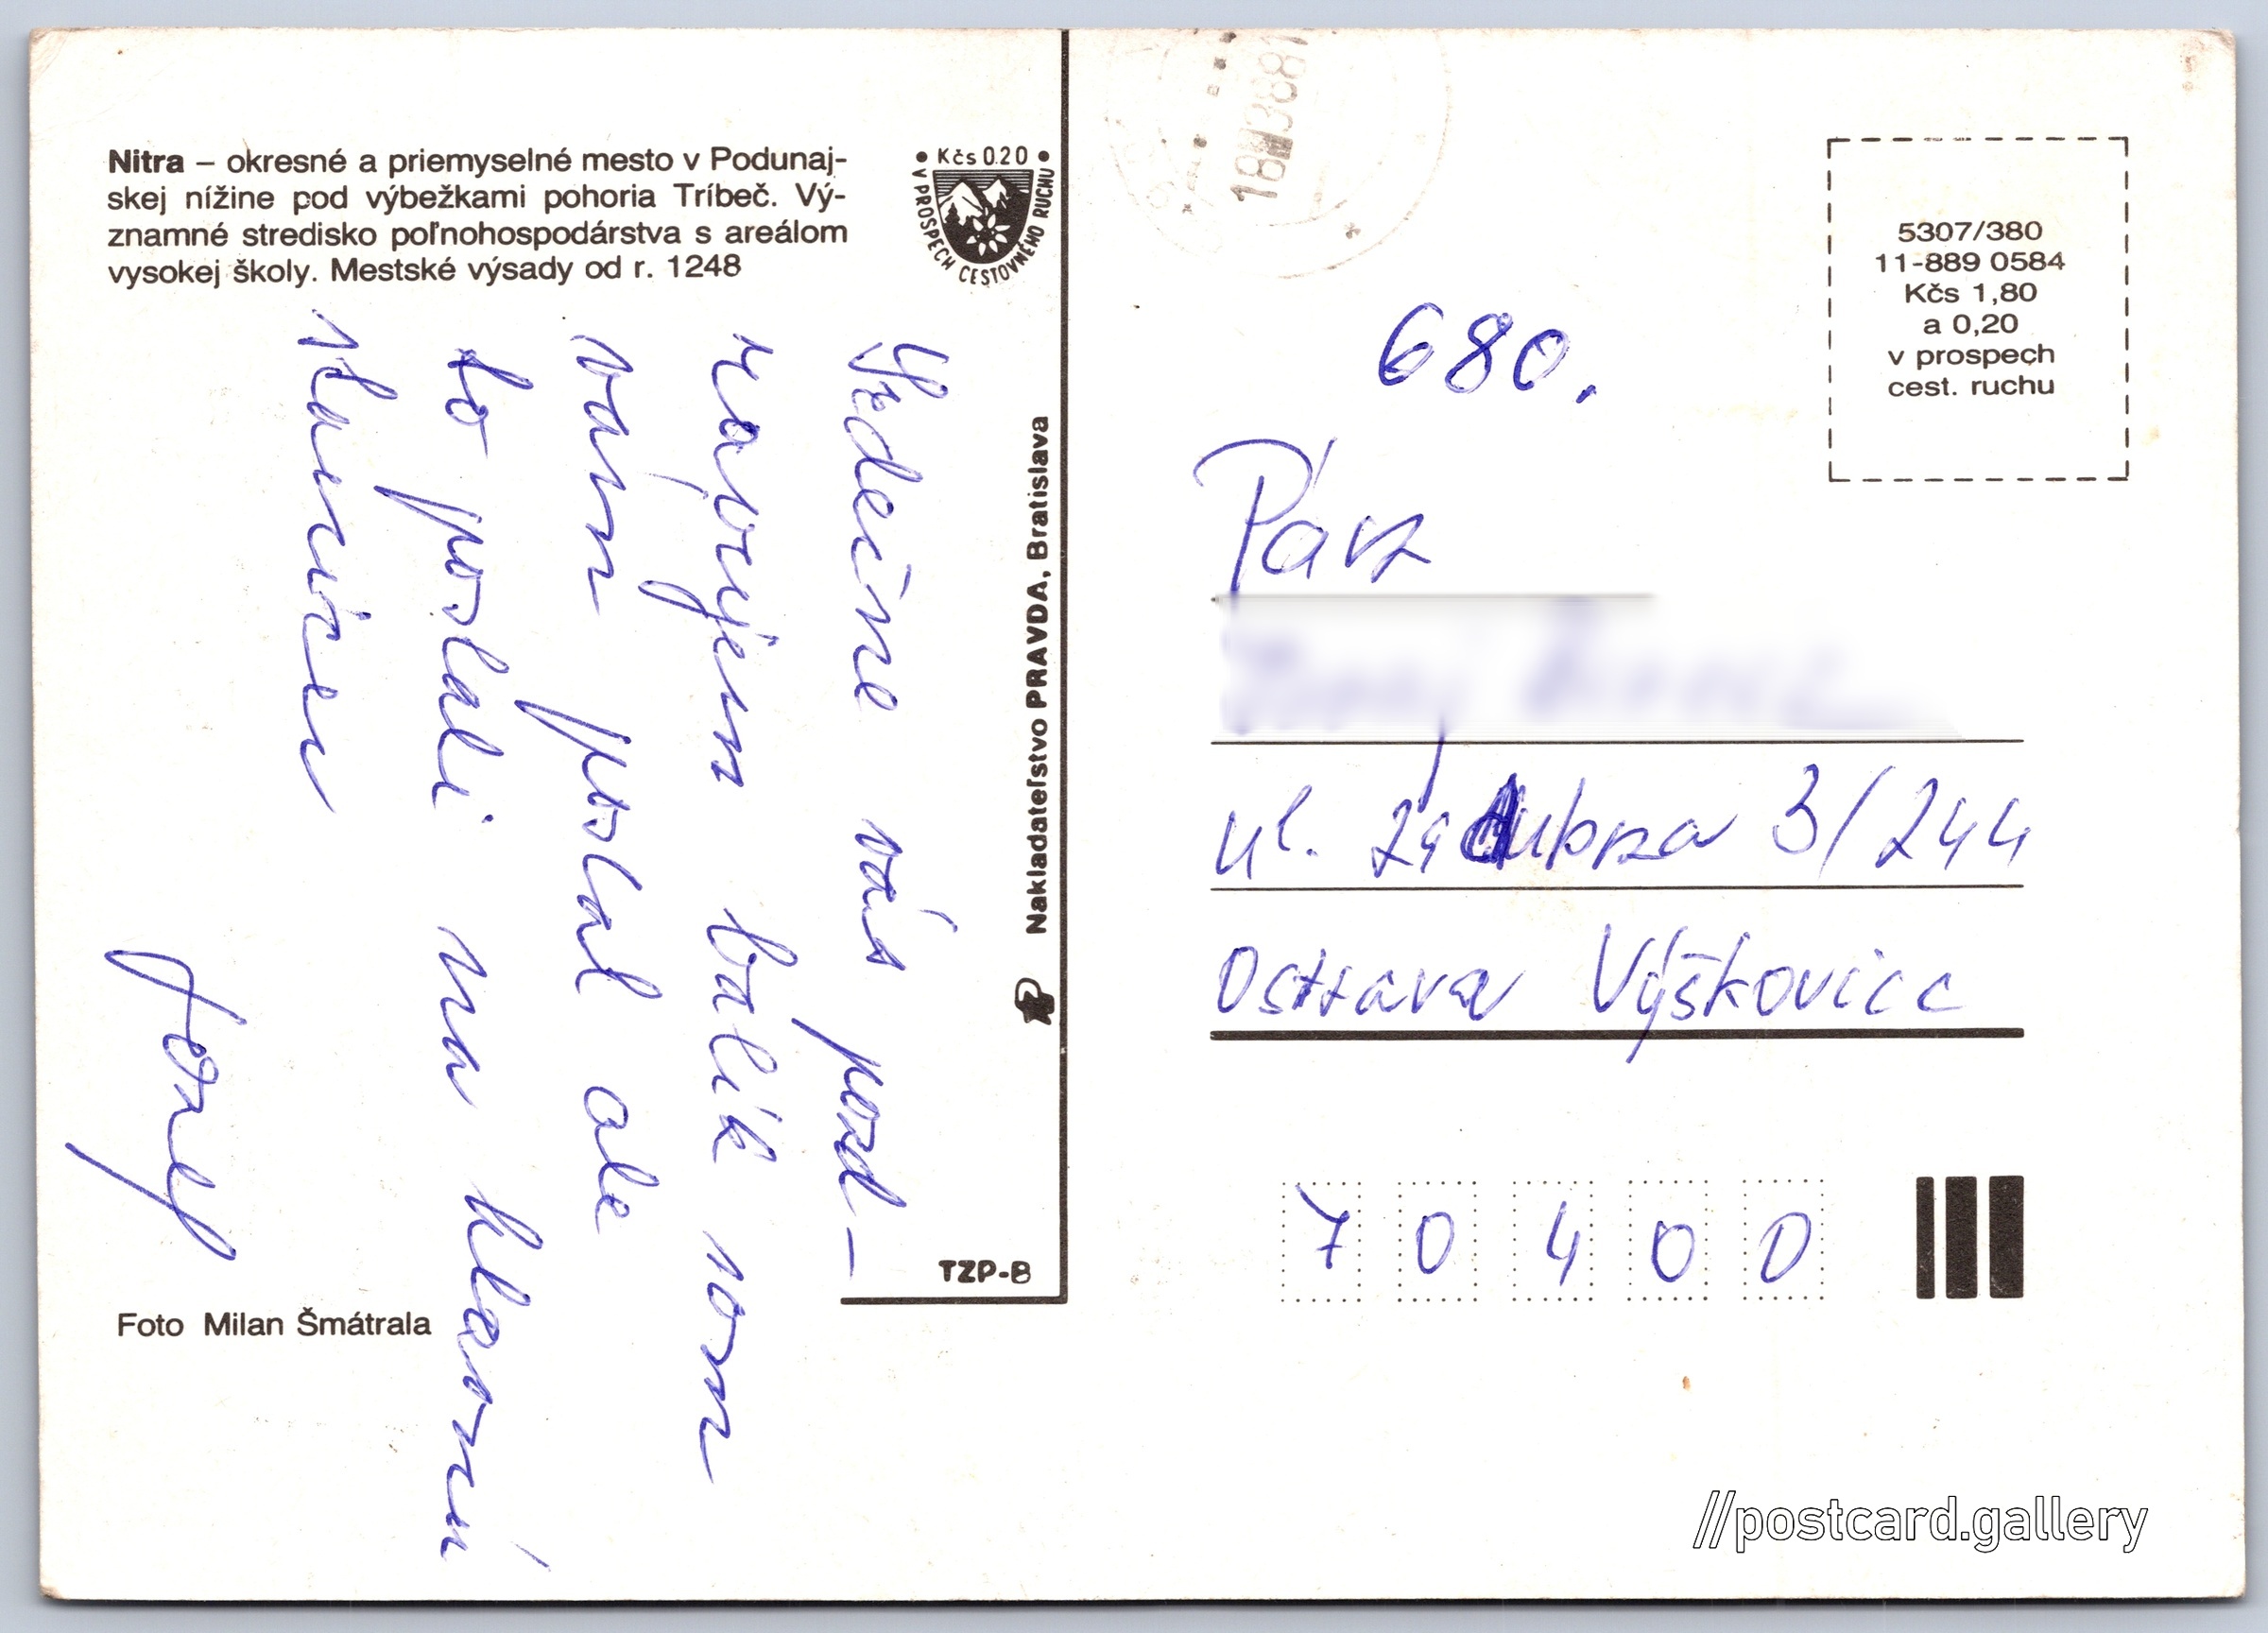 Nitra – okresné a priemyselné mesto v Podunaj-
skej nížine pod výbežkami pohoria Tríbeč. Vý-
znamné stredisko poľnohospodárstva s areálom
vysokej školy. Mestské výsady od r. 1248
• Kčs 0.20 •
V PROSPECH CESTOVNÉHO RUCHU
Srdečne vás pozd-
ravujem balík som
vám poslal ale
to poslali na hlavní
stanicu
Nakladateľstvo PRAVDA, Bratislava
TZP-B
Foto Milan Šmátrala
5307/380
11-889 0584
Kčs 1,80
a 0,20
v prospech
cest. ruchu
680.
ul. 3/244
Ostrava Výškovice
70400
//postcard.gallery